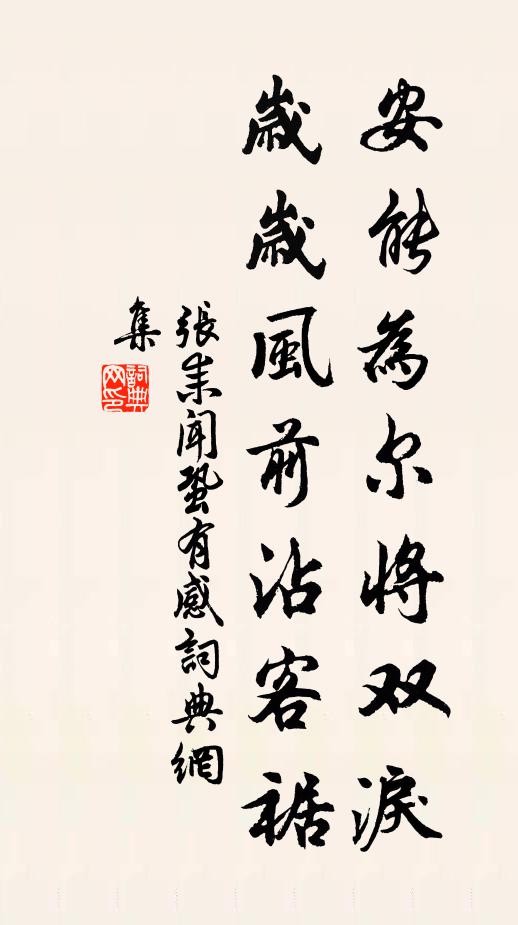 安能為尔將双淚
歲歲風前沾客裾
張耒聞蛩有感詞典網
集
詞典
网印